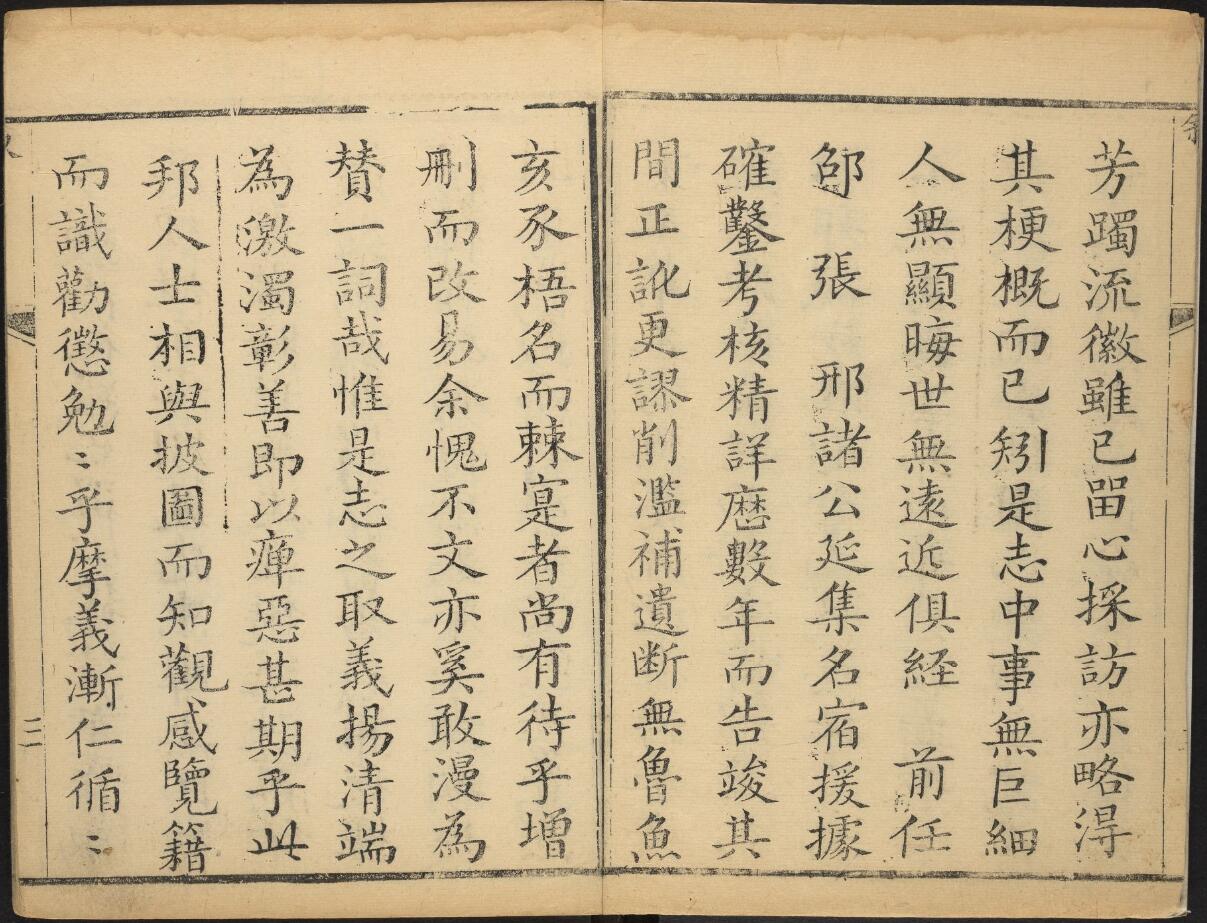 芳躅流徽雖已畱心採訪亦略淂
其梗概而已矧是志中事無巨細
人無顯晦世無遠近俱経　前任
郃　張　邢諸公延集名宿援據
確鑿考核精詳歴數年而告竣其
間正訛更謬削濫補遺断無魯魚
亥豕梧名而棘寔者尚有待乎增
刪而改易余愧不文亦奚敢漫為
賛一詞哉惟是志之取義揚清端
為激濁彰善即以癉惡甚期乎此
邦人士相與披圖而知觀感覽籍
而識勸懲勉〻乎摩義漸仁循〻
二